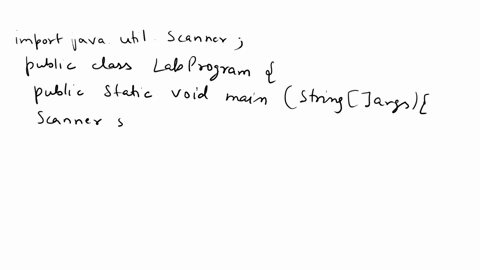 import java util. Scanner ;
public class LabProgram {
public static void main (String[]args){
Scanner s